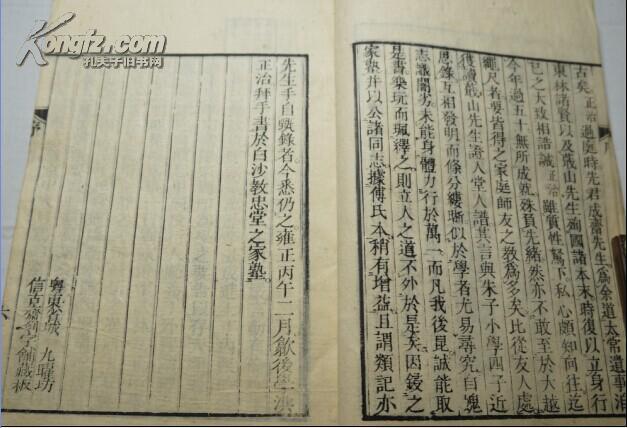 古矣正治過庭時先君成齋先生為余道太常遺事洎
東林諸賢以及蕺山先生殉國諸本末時復以立身行
己之大致相誥誡正治雖質性駑下私心頗知向往迄
今年過五十無所成就殊負先緒然亦不敢至於大越
繩尺者要皆得之家庭師友之教為多矣比從友人處
獲讀蕺山先生證人堂人譜其言與朱子小學四子近
思錄互相發明而條分縷晰似於學者尤易尋究自愧
志識闇劣未能身體力行於萬一而凡我後昆誠能取
是書樂玩而珮繹之則立人之道不外於是矣因鋟之
家塾并以公諸同志據傅氏本稍有增益且謂類記亦
先生手自甄錄者今悉仍之雍正丙午二月歙後學洪
正治拜手書於白沙教忠堂之家塾
粵東省城 九曜坊
信克齋剞文鋪藏板
六
Kongfz.com
孔夫子旧书网